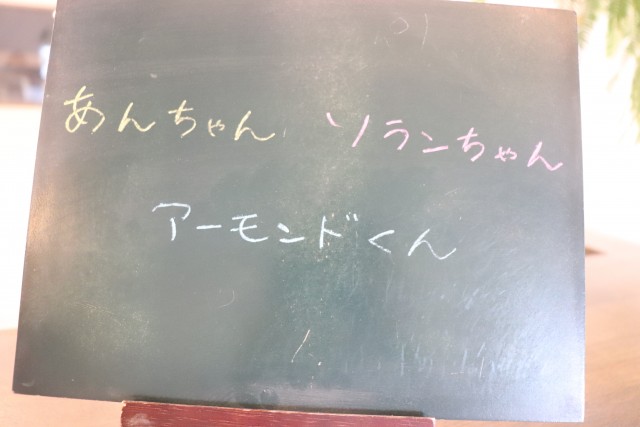 あんちゃん ソランちゃん
アーモンドくん